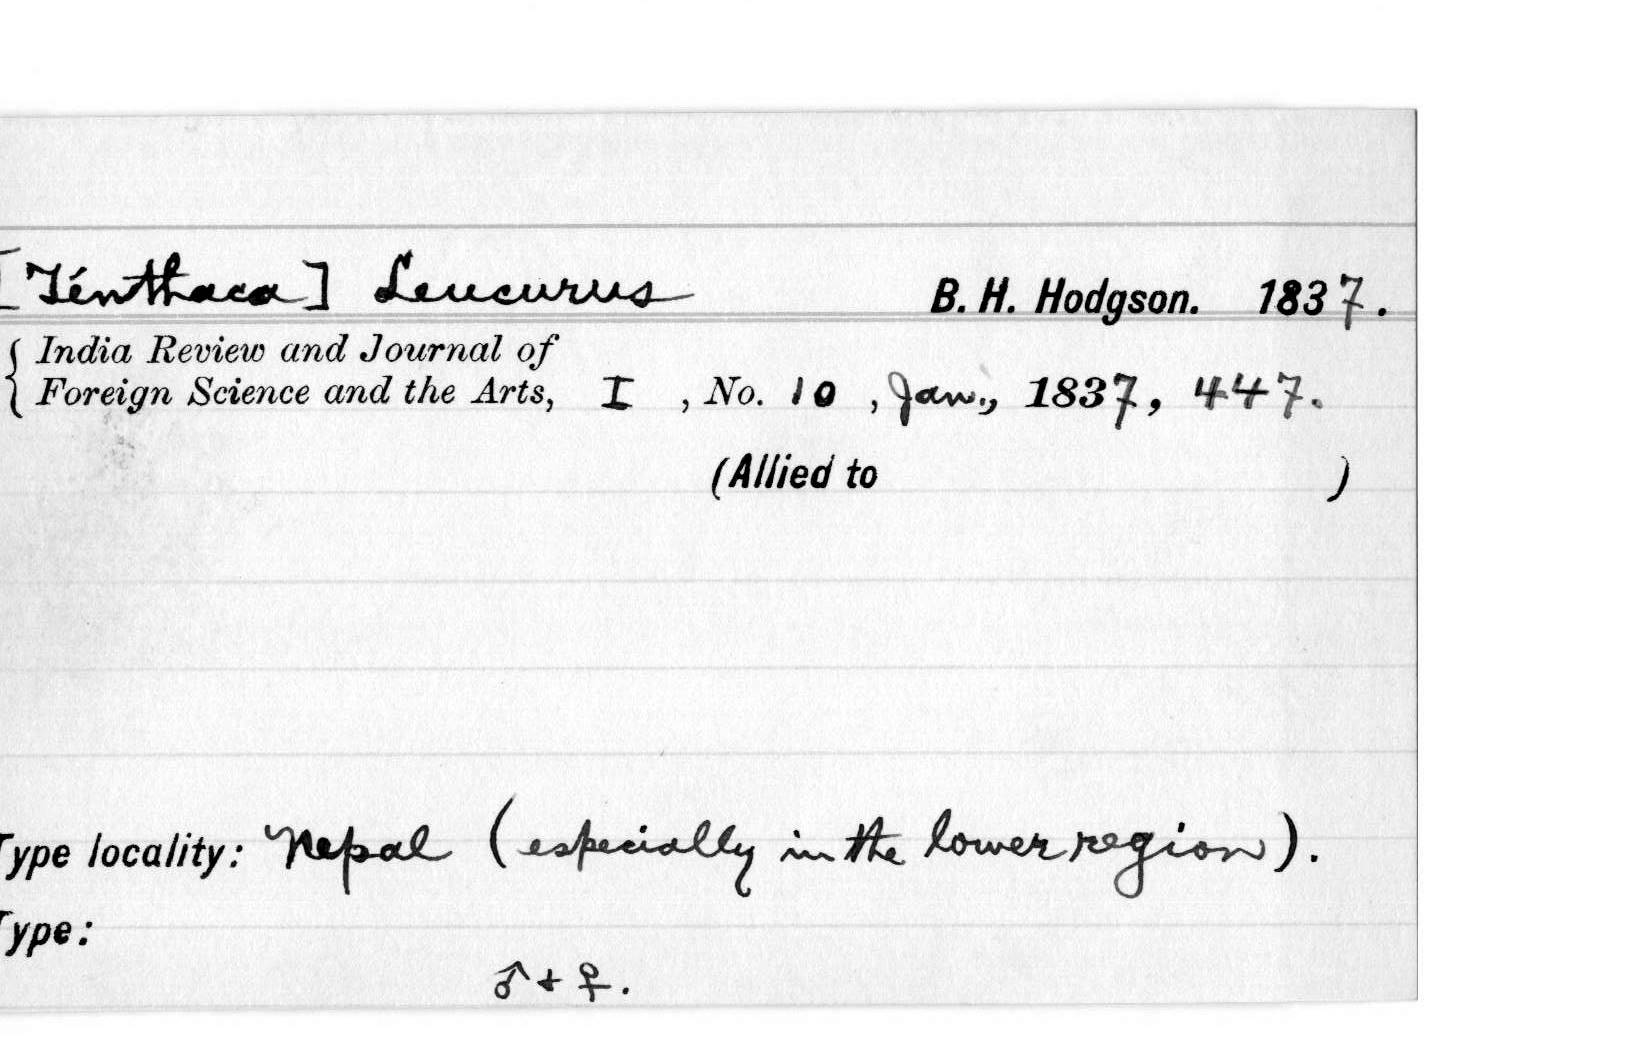 [Ténthaca] Leucurus B. H. Hodgson. 1837.
India Review and Journal of
Foreign Science and the Arts, I , No. 10 , Jan., 1837, 447.
(Allied to )
Type locality: Nepal (especially in the lower region).
Type:
♂ + ♀.